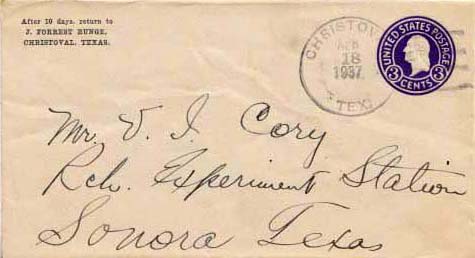 After 10 days, return to
J. FORREST RUNGE,
CHRISTOVAL, TEXAS.
CHRISTOV
18
1937
TEX.
UNITED STATES POSTAGE
3 CENTS 3
Mr. V. I. Cory
Rch. Experiment Station
Sonora Texas